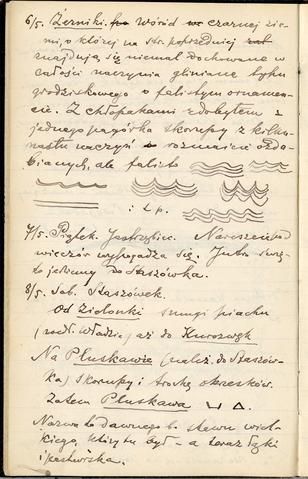 6/5. Żerniki. Wśród czarnej zie-
mi, o której na str. poprzedniej
znajdują się niemal dochowane w
całości naczynia gliniane typu
grodziskowego o falistym ornamen-
cie. Z chłopakami zdobyłem z
jednego pagórka skorupy z kilku-
nastu naczyń rozmaicie ozdo-
bianych, ale falisto
i t. p.
7/5. Piątek. Jastrzębiec. Nareszcie pod
wieczór wypogadza się. Jutro
to jedziemy do Staszówka.
8/5. Sob. Staszówek.
Od Zielonki smugi piachu
(rodz. Władzie) aż do Kurozwęk
Na Pluskawie (należ. do Staszów-
ka) skorupy i trochę okrzesków.
Zatem Pluskawa
Nazwa to dawnego b. stawu wiel-
kiego, który tu był – a teraz łąki
i pastwiska.